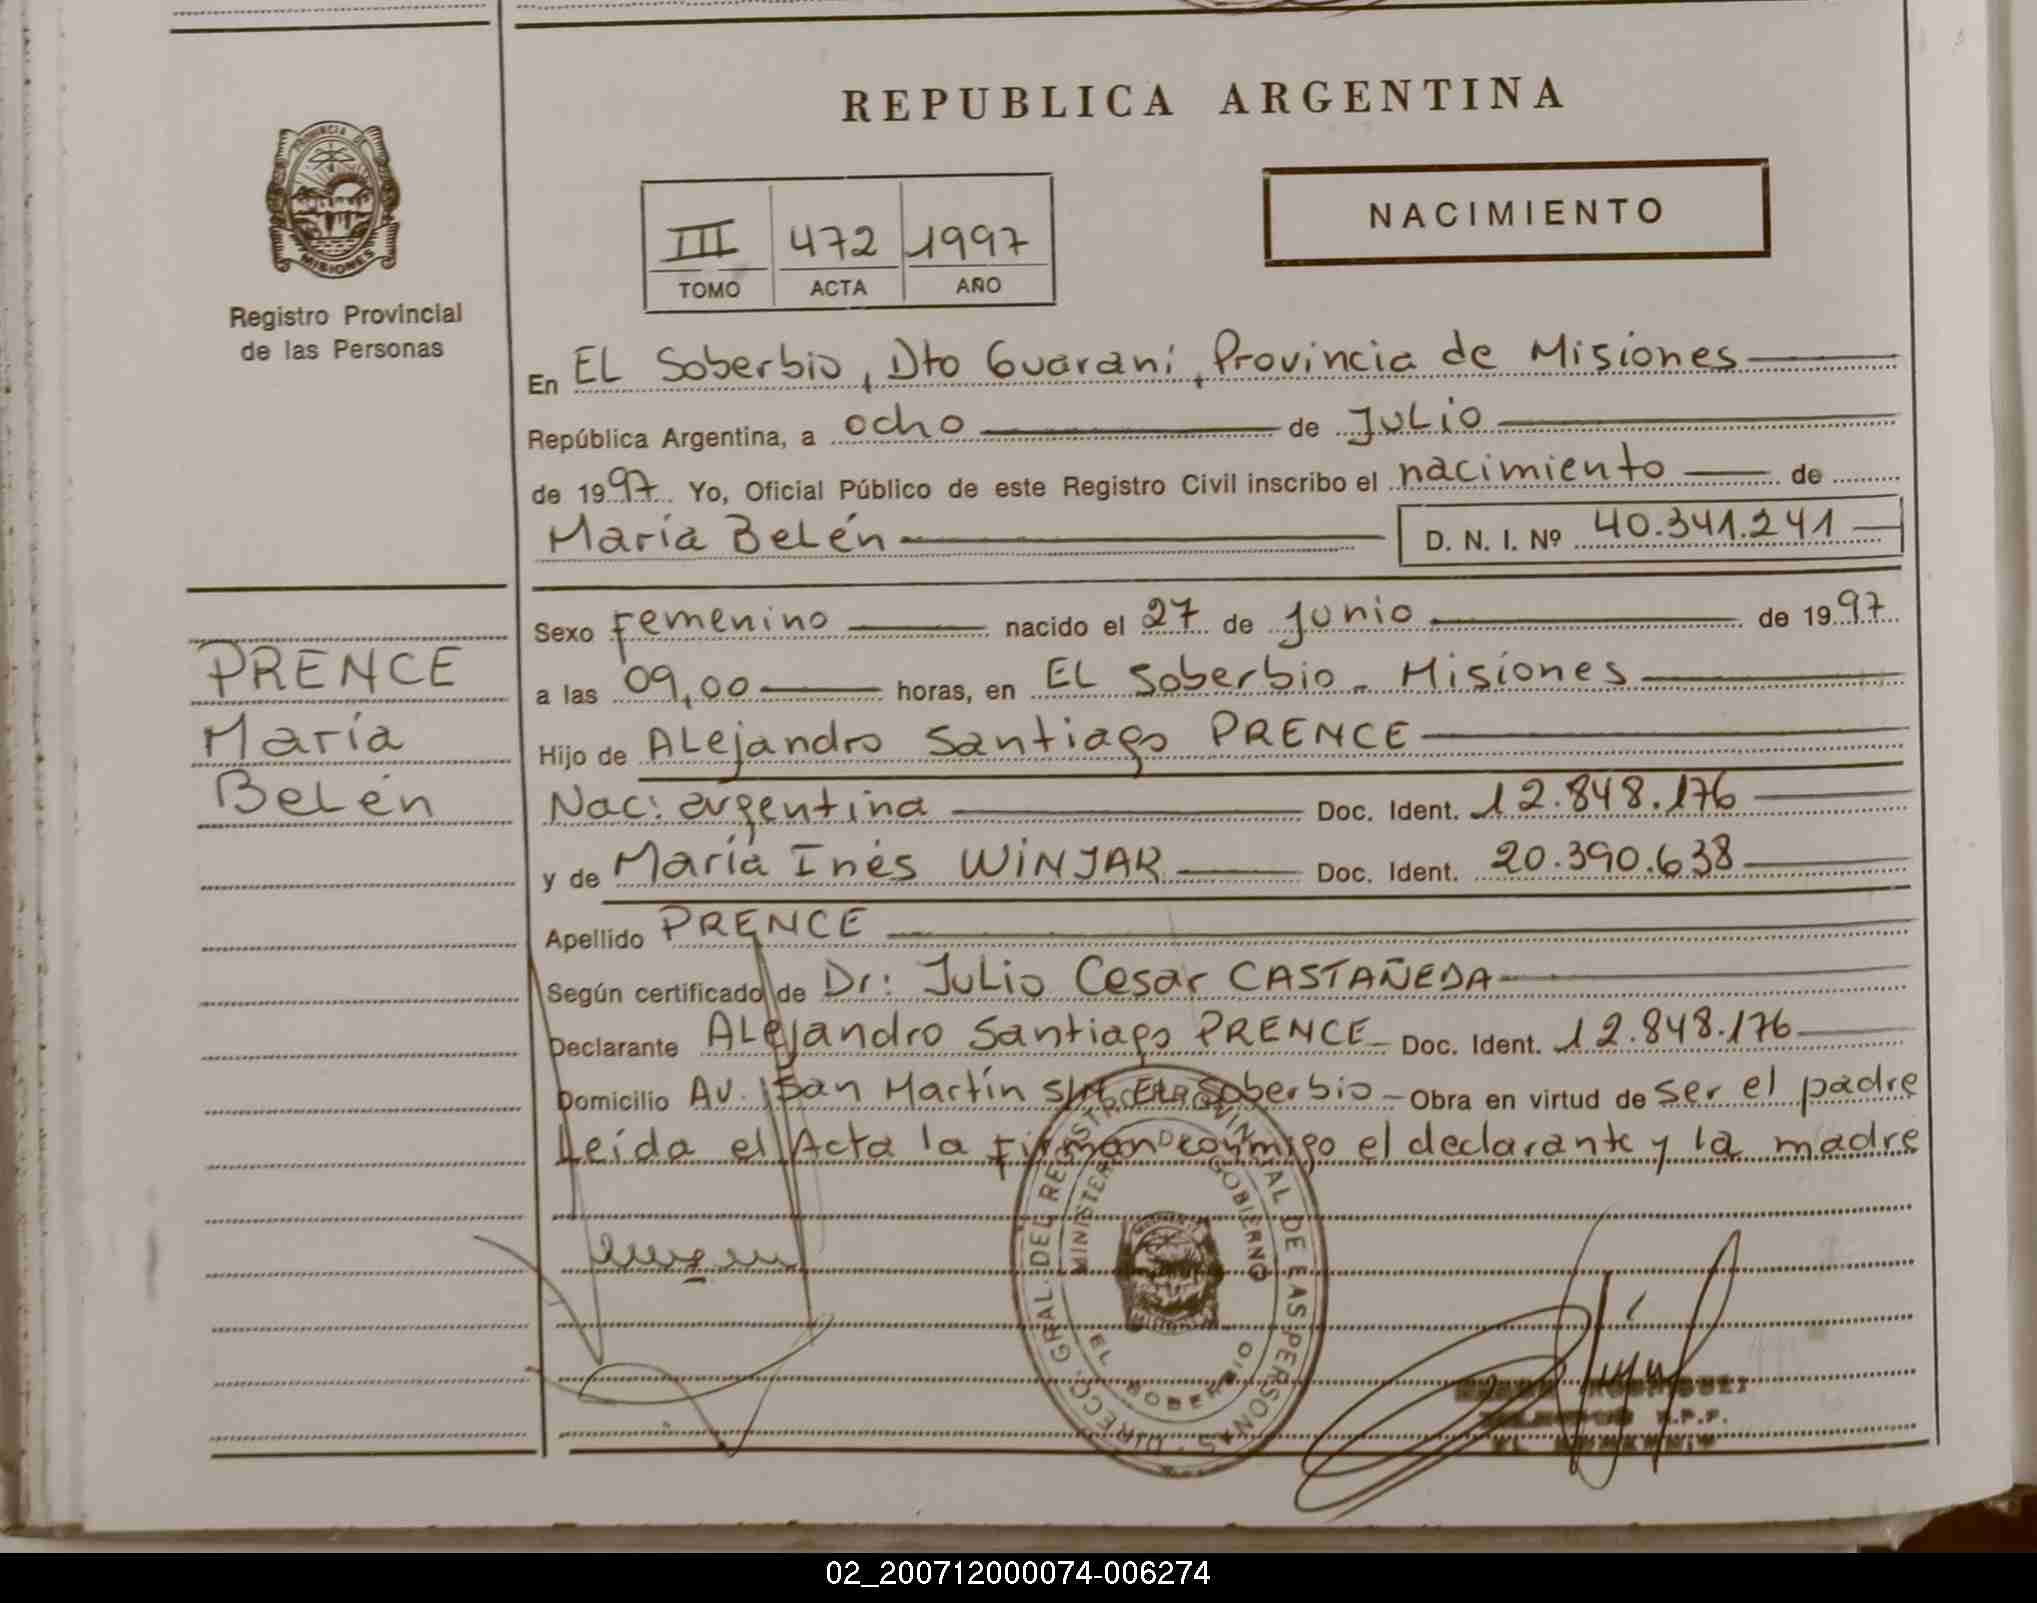 REPUBLICA ARGENTINA
PROVINCIA DE
MISIONES
Registro Provincial
de las Personas
NACIMIENTO
III 472 1997
TOMO ACTA AÑO
En EL Soberbio, Dto Guaraní, Provincia de Misiones
República Argentina, a ocho de Julio
de 1997 Yo, Oficial Público de este Registro Civil inscribo el nacimiento de
María Belén D. N. I. Nº 40.341.241
PRENCE
María
Belén
Sexo Femenino nacido el 27 de junio de 1997
a las 09,00 horas, en EL Soberbio - Misiones
Hijo de ALejandro Santiago PRENCE
Nac: argentina Doc. Ident. 12.848.176
y de María Inés WINJAR Doc. Ident. 20.390.638
Apellido PRENCE
Según certificado de Dr: Julio Cesar CASTAÑEDA
Declarante ALejandro Santiago PRENCE Doc. Ident. 12.848.176
Domicilio Av. San Martín s/n EL Soberbio - Obra en virtud de ser el padre
Leída el Acta la firman conmigo el declarante y la madre
DIRECC. GRAL. DEL REGISTRO PROVINCIAL DE LAS PERSONAS
MINISTERIO DE GOBIERNO
EL SOBERBIO
02_200712000074-006274